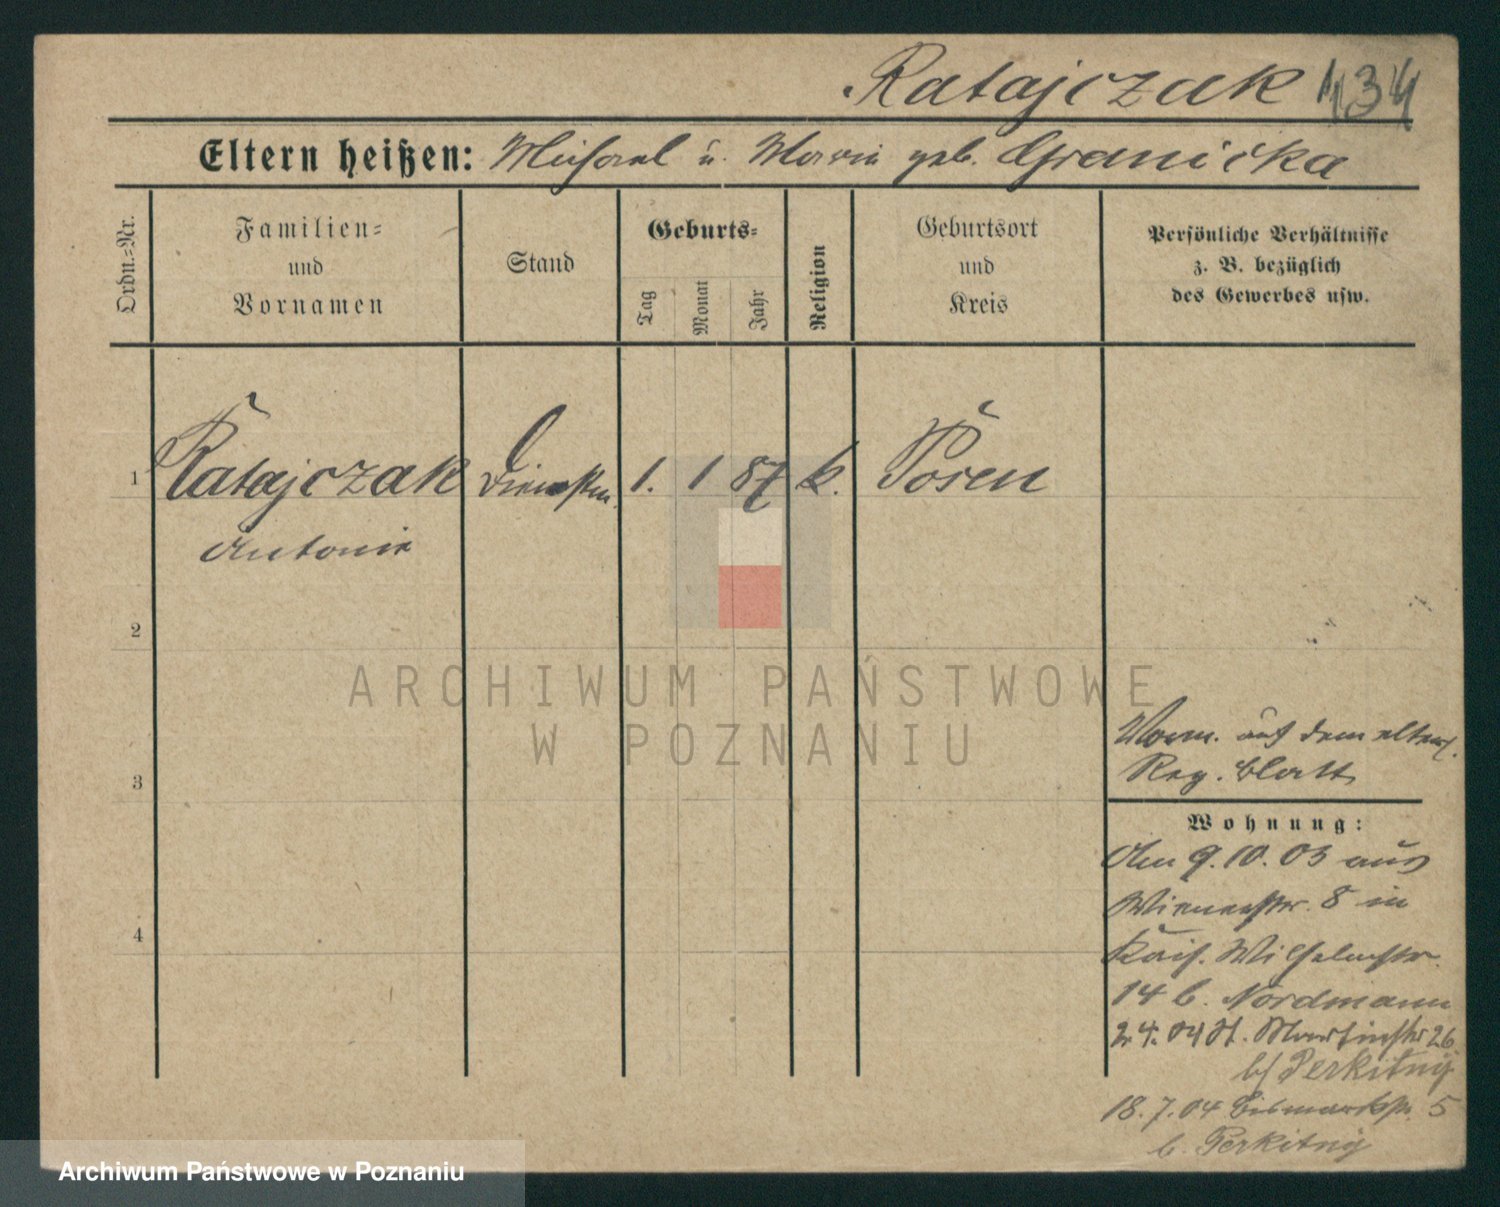 Ratajczak 134
Eltern heißen: Michael u. Marie geb. Granicka
Ordn.=Nr.
Familien=
und
Vornamen
Stand
Geburts=
Tag
Monat
Jahr
Religion
Geburtsort
und
Kreis
Persönliche Verhältnisse
z. B. bezüglich
des Gewerbes usw.
1 Ratajczak 1. 1 87 k. Posen
Antonie
2
ARCHIWUM PAŃSTWOWE
W POZNANIU
Verm. auf dem alten
Reg. Blatt
3
Wohnung:
Am 9.10.03 aus
Wienerstr. 8 in
4
Kais. Wilhelmstr.
14 b. Nordmann
2.4.04 St. Martinstr 26
b/ Perkitny
18.7.04 Bismarckstr. 5
b. Perkitny
Archiwum Państwowe w Poznaniu